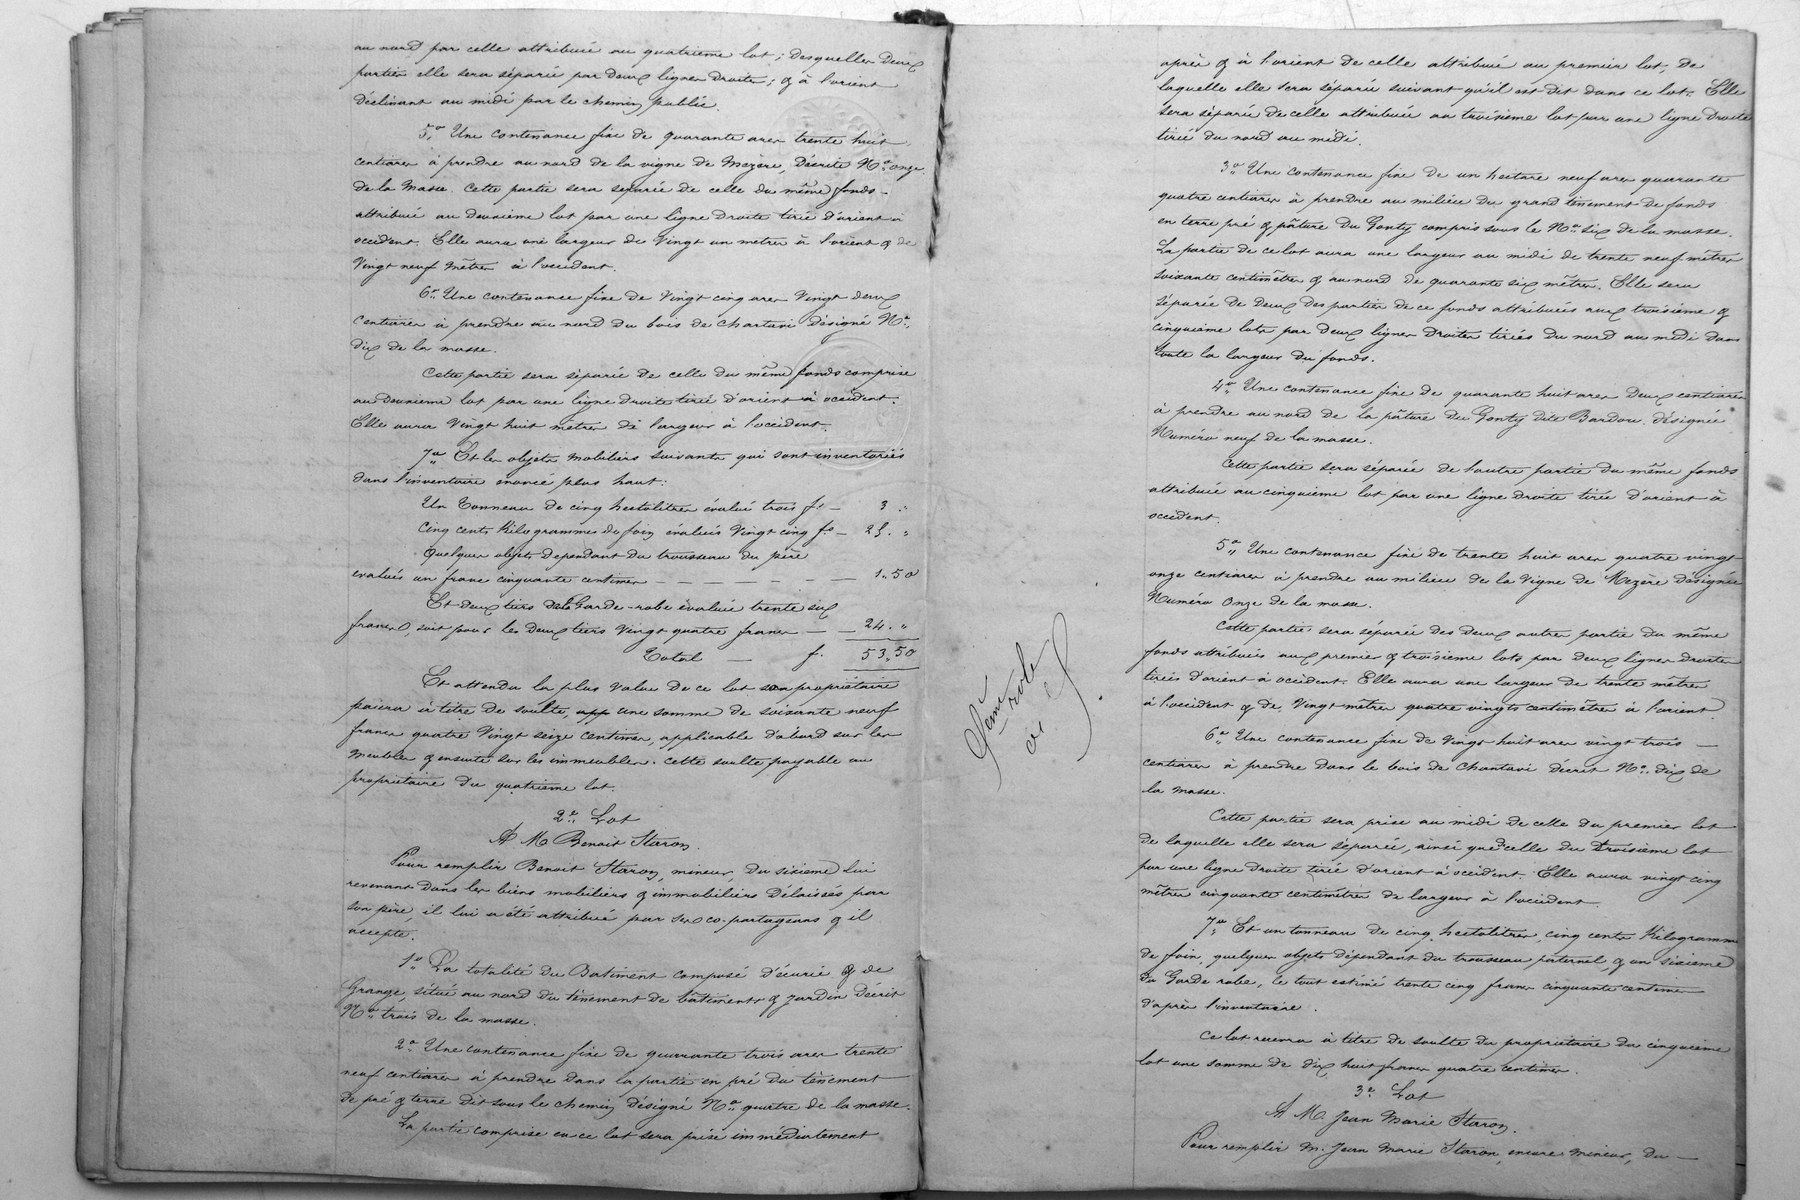 au nord par celle attribuée au quatrième lot; desquelles deux
parties elle sera séparée par deux lignes droites; & à l'orient
déclinant au midi par le chemin public.
5° Une contenance fixe de quarante ares trente huit
centiares à prendre au nord de la vigne de Mezère, décrite N° onze
de la masse. Cette partie sera séparée de celle du même fonds
attribuée au deuxième lot par une ligne droite tirée d'orient à
occident. Elle aura une largeur de vingt un mètres à l'orient & de
vingt neuf mètres à l'occident.
6° Une contenance fixe de vingt cinq ares vingt deux
centiares à prendre au nord du bois de Chantavi désigné N°
dix de la masse.
Cette partie sera séparée de celle du même fonds comprise
au deuxième lot par une ligne droite tirée d'orient à occident.
Elle aura vingt huit mètres de largeur à l'occident.
7° Et les objets mobiliers suivants qui sont inventoriés
dans l'inventaire énoncé plus haut:
Un Tonneau de cinq hectolitres évalué trois f. — 3 "
Cinq cents Kilogrammes de foin évalués vingt cinq fs — 25. "
Quelques objets dépendant du trousseau du père
évalués un franc cinquante centimes — — — — — — — 1.50
Et deux tiers de la Garde-robe évaluée trente six
francs, soit pour les deux tiers vingt quatre francs — — 24. "
Total — f. 53.50
Et attendu la plus value de ce lot son propriétaire
paiera à titre de soulte, une somme de soixante neuf
francs quatre vingt seize centimes, applicable d'abord sur les
meubles & ensuite sur les immeubles. Cette soulte payable au
propriétaire du quatrième lot.
2e Lot
A M Benoit Staron.
Pour remplir Benoit Staron, mineur, du sixième lui
revenant dans les biens mobiliers & immobiliers délaissés par
son père, il lui a été attribué par ses co-partageans & il
accepte.
1° La totalité du Batiment composé d'écurie & de
Grange, situé au nord du tènement de batiments & jardin décrit
N° trois de la masse.
2° Une contenance fixe de quarante trois ares trente
neuf centiares à prendre dans la partie en pré du tènement
de pré & terre dit sous le chemin désigné N° quatre de la masse.
La partie comprise en ce lot sera prise immédiatement
après & à l'orient de celle attribuée au premier lot, de
laquelle elle sera séparée suivant qu'il est dit dans ce lot. Elle
sera séparée de celle attribuée au troisième lot par une ligne droite
tirée du nord au midi.
3° Une contenance fixe de un hectare neuf ares quarante
quatre centiares à prendre au milieu du grand tènement de fonds
en terre pré & pâture du Gonty compris sous le N° six de la masse.
La partie de ce lot aura une largeur au midi de trente neuf mètres
soixante centimètres & au nord de quarante six mètres. Elle sera
séparée de deux des parties de ce fonds attribuées aux troisième &
cinquième lots par deux lignes droites tirées du nord au midi dans
toute la largeur du fonds.
4° Une contenance fixe de quarante huit ares deux centiares
à prendre au nord de la pâture du Gonty dite Bardou désignée
Numéro neuf de la masse.
Cette partie sera séparée de l'autre partie du même fonds
attribuée au cinquième lot par une ligne droite tirée d'orient à
occident.
5° Une contenance fixe de trente huit ares quatre vingt
onze centiares à prendre au milieu de la Vigne de Mezère désignée
Numéro Onze de la masse.
Cette partie sera séparée des deux autres partie du même
fonds attribuées aux premier & troisième lots par deux lignes droites
tirées d'orient à occident. Elle aura une largeur de trente mètres
à l'occident & de vingt mètres quatre vingts centimètres à l'orient.
6° Une contenance fixe de vingt huit ares vingt trois —
centiares à prendre dans le bois de Chantavi décrit N° dix de
la masse.
Cette partie sera prise au midi de celle du premier lot
de laquelle elle sera séparée, ainsi que celle du troisième lot
par une ligne droite tirée d'orient à occident. Elle aura vingt cinq
mètres cinquante centimètres de largeur à l'occident.
7° Et un tonneau de cinq hectolitres, cinq cents Kilogramme
de foin, quelques objets dépendant du trousseau paternel, & un sixième
du Garde robe, le tout estimé trente cinq francs cinquante centimes
d'après l'inventaire.
Ce lot recevra à titre de soulte du propriétaire du cinquième
lot une somme de dix huit francs quatre centimes.
3e Lot
A M. Jean Marie Staron.
Pour remplir M. Jean Marie Staron, encore mineur, du —